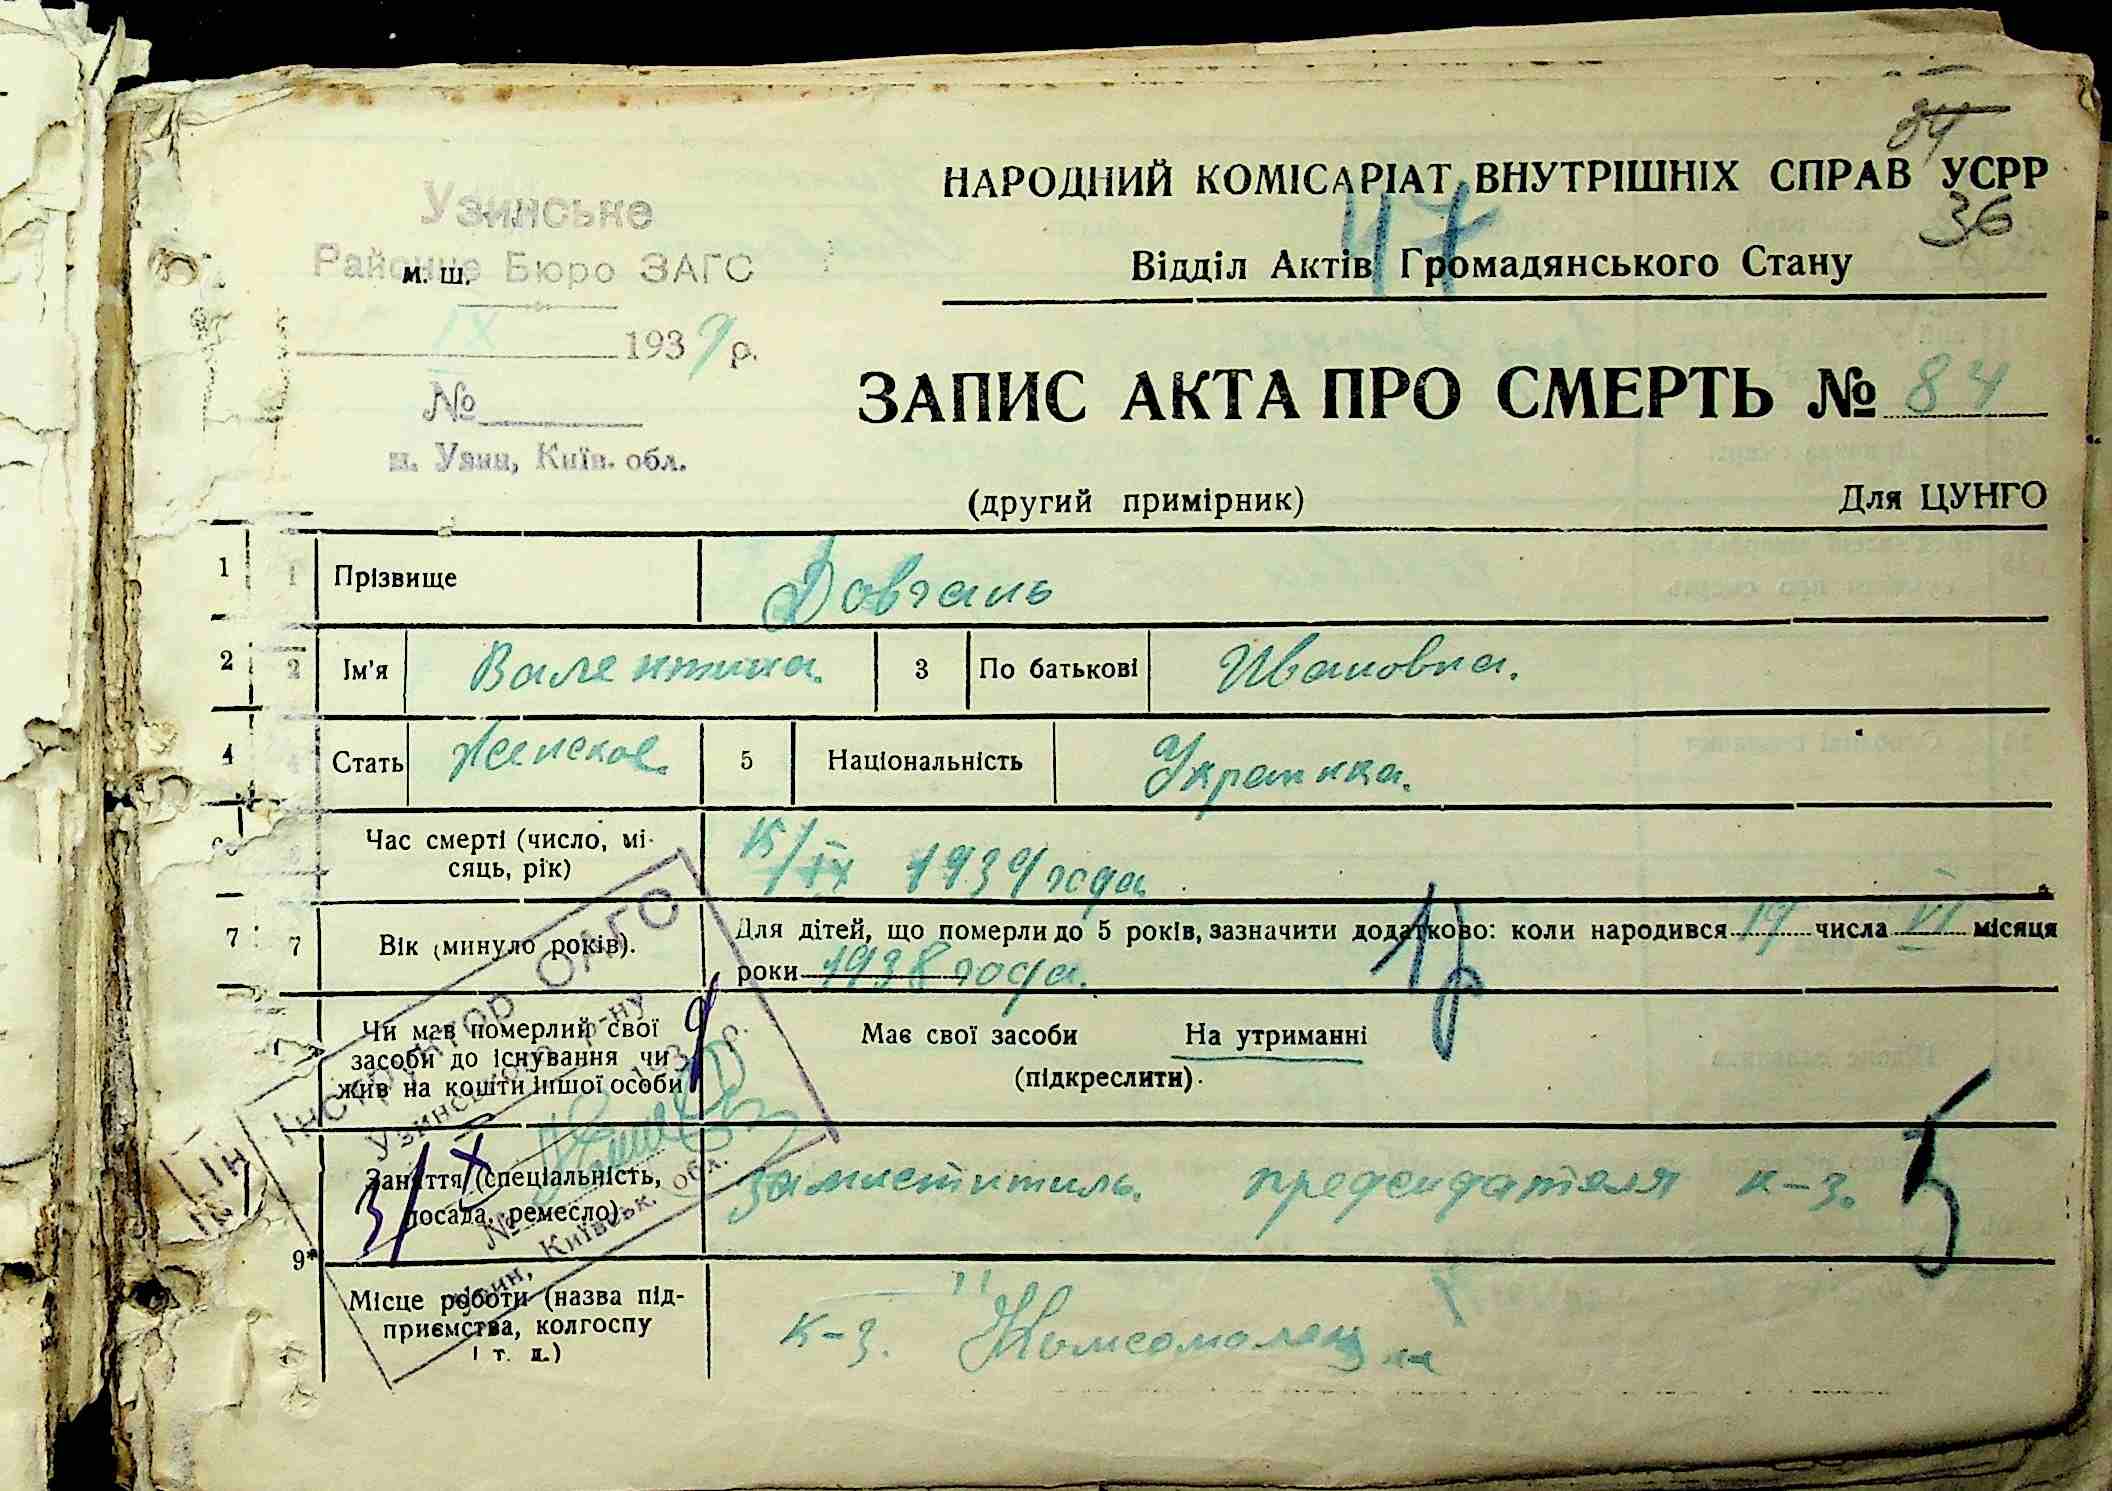 84
НАРОДНИЙ КОМІСАРІАТ ВНУТРІШНІХ СПРАВ УСРР
36
47
Відділ Актів Громадянського Стану
Узинське
Районне Бюро ЗАГС
м. ш.
IX 1939 р.
№
м. Узин, Київ. обл.
ЗАПИС АКТА ПРО СМЕРТЬ № 84
(другий примірник) Для ЦУНГО
1 1 Прізвище Довгань
2 2 Ім'я Валентина. 3 По батькові Ивановна.
4 4 Стать Женское. 5 Національність Украинка.
Час смерті (число, мі-
сяць, рік)
15/IX 1939 года
7 7 Вік (минуло років). Для дітей, що померли до 5 років, зазначити додатково: коли народився 19 числа VI місяця
роки 1938 года.
1р
Чи мав померлий свої
засоби до існування чи
жив на кошти іншої особи
Має свої засоби На утриманні
(підкреслити).
Заняття (спеціальність,
посада, ремесло)
заместитиль председателя к-з.
5
9*
Місце роботи (назва під-
приємства, колгоспу
і т. д.)
к-з. "Комсомолец
Інструктор ОАГС
Узинського р-ну
3/X 1939 р.
№
Узин, Київськ. обл.